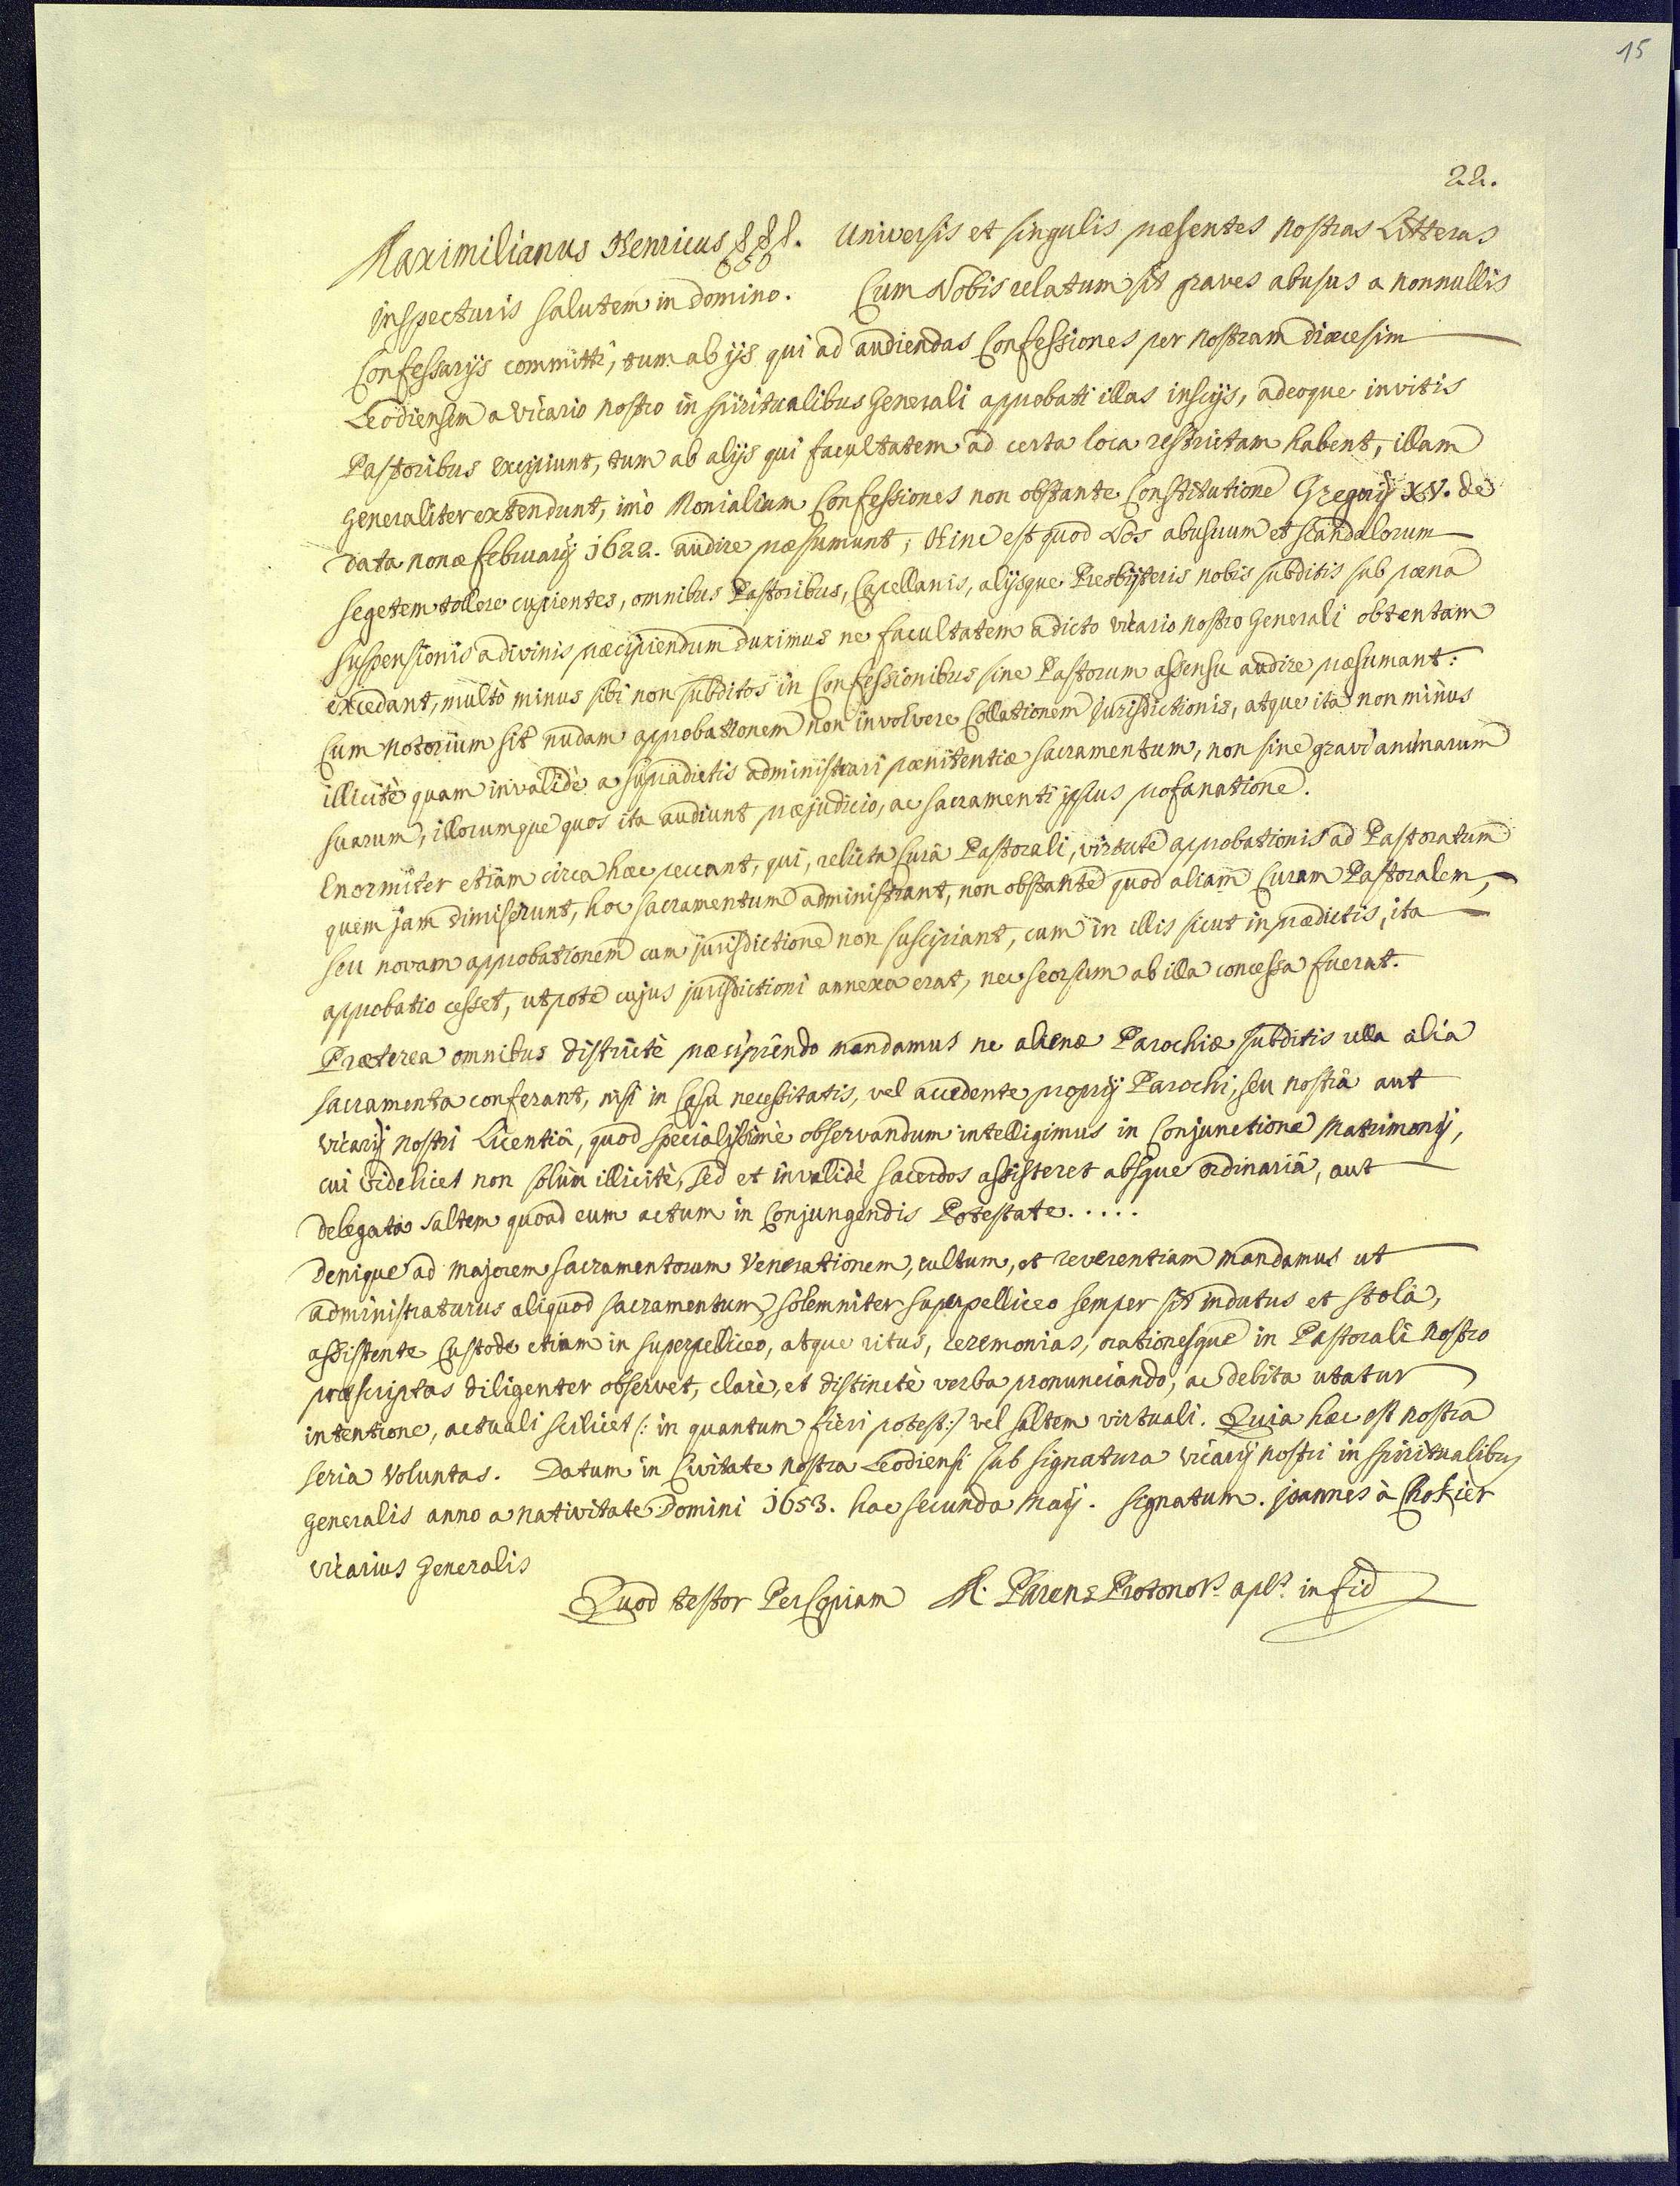 15
22.
Maximilianus Henricus &c &c &c. Universis et singulis præsentes nostras Litteras
inspecturis salutem in domino. Cum Nobis relatum sit graves abusus a nonnullis
Confessarijs committi, tum ab ijs qui ad audiendas Confessiones per nostram diœcesim
Leodiensem a vicario nostro in spiritualibus Generali approbati illas inscijs, adeoque invitis
Pastoribus excipiunt, tum ab alijs qui facultatem ad certa loca restrictam habent, illam
generaliter extendunt, imò Monialium Confessiones non obstante Constitutione Gregorij XV. de
data nonæ february 1622. audire præsumunt; Hinc est quod Nos abusuum et scandalorum
segetem tollere cupientes, omnibus Pastoribus, Capellanis, alijsque Presbijteris nobis subditis sub pœna
suspensionis a divinis præcipiendum duximus ne facultatem a dicto vicario nostro Generali obtentam
excedant, multò minus sibi non subditos in Confessionibus sine Pastorum assensu audire præsumant:
Cum notorium sit nudam approbationem non involvere Collationem jurisdictionis, atque ita non minùs
illicitè quam invalidè a supradictis administrari pœnitentiæ sacramentum, non sine gravi animarum
suarum, illorumque quos ita audiunt præjudicio, ac sacramenti ipsius profanatione.
Enormiter etiam circa hæc peccant, qui, relicta Curâ Pastorali, virtute approbationis ad Pastoratum
quem jam dimiserunt, hoc sacramentum administrant, non obstante quod aliam Curam Pastoralem,
seu novam approbationem cum jurisdictione non suscipiant, cum in illis sicut in prædictis, ita
approbatio cesset, utpote cujus jurisdictioni annexa erat, nec seorsum ab illa concessa fuerat.
Præterea omnibus districtè præcipiendo mandamus ne alienæ Parochiæ subditis ulla alia
sacramenta conferant, nisi in Casu necessitatis, vel accedente proprij Parochi, seu nostrâ aut
vicarij nostri Licentiâ, quod specialissimè observandum intelligimus in Conjunctione Matrimonij,
cui videlicet non solùm illicitè, sed et invalidè sacerdos assisteret absque ordinariâ, aut
delegata saltem quoad eum actum in Conjungendis Potestate.....
Denique ad majorem sacramentorum Venerationem, cultum, et reverentiam mandamus ut
administraturus aliquod sacramentum, solemniter superpelliceo semper sit indutus et stolâ,
assistente Custode etiam in superpelliceo, atque ritus, ceremonias, orationesque in Pastorali nostro
præscriptas diligenter observet, clarè, et distinctè verba pronunciando, ac debita utatur
intentione, actuali scilicet (: in quantum fieri potest:) vel saltem virtuali. Quia hæc est nostra
seria voluntas. Datum in Civitate nostra Leodiensi sub signatura vicarij nostri in spiritualibus
generalis anno a nativitate Domini 1653. hac secunda Maij. Signatum. Joannes à Chokier
vicarius Generalis
Quod testor Per Copiam Parens Protonors. apls. in fid